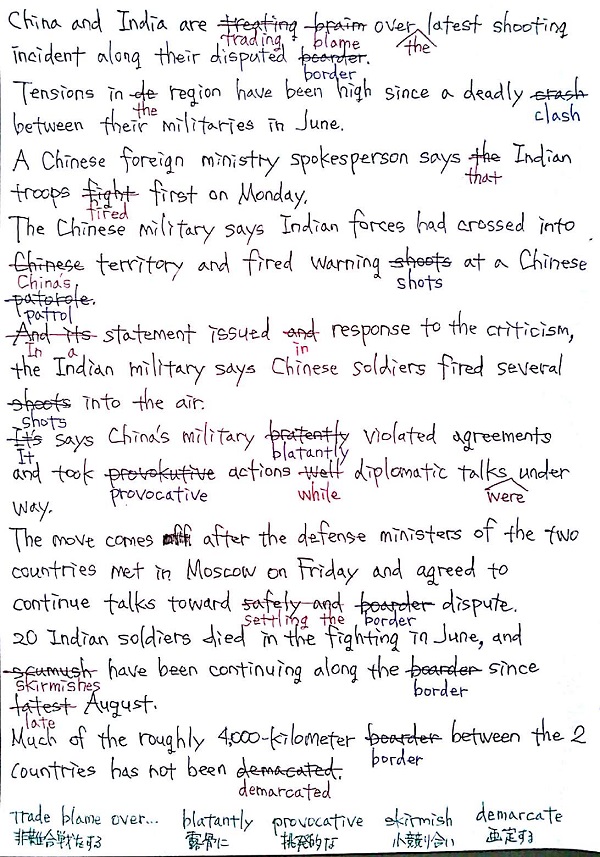 China and India are treating braim over latest shooting
trading blame the
incident along their disputed boarder.
border
Tensions in de region have been high since a deadly crash
the clash
between their militaries in June.
A Chinese foreign ministry spokesperson says the Indian
that
troops fight first on Monday.
fired
The Chinese military says Indian forces had crossed into
Chinese territory and fired warning shoots at a Chinese
China's shots
patorole.
patrol
And its statement issued and response to the criticism,
In a in
the Indian military says Chinese soldiers fired several
shoots into the air.
shots
It's says China's military bratently violated agreements
It blatantly
and took provokutive actions well diplomatic talks under
provocative while were
way.
The move comes after the defense ministers of the two
countries met in Moscow on Friday and agreed to
continue talks toward safely and boarder dispute.
settling the border
20 Indian soldiers died in the fighting in June, and
scumush have been continuing along the boarder since
skirmishes border
latest August.
late
Much of the roughly 4,000-kilometer boarder between the 2
border
countries has not been demacated.
demarcated
trade blame over... blatantly provocative skirmish demarcate
非難合戦をする 露骨に 挑発的な 小競り合い 画定する